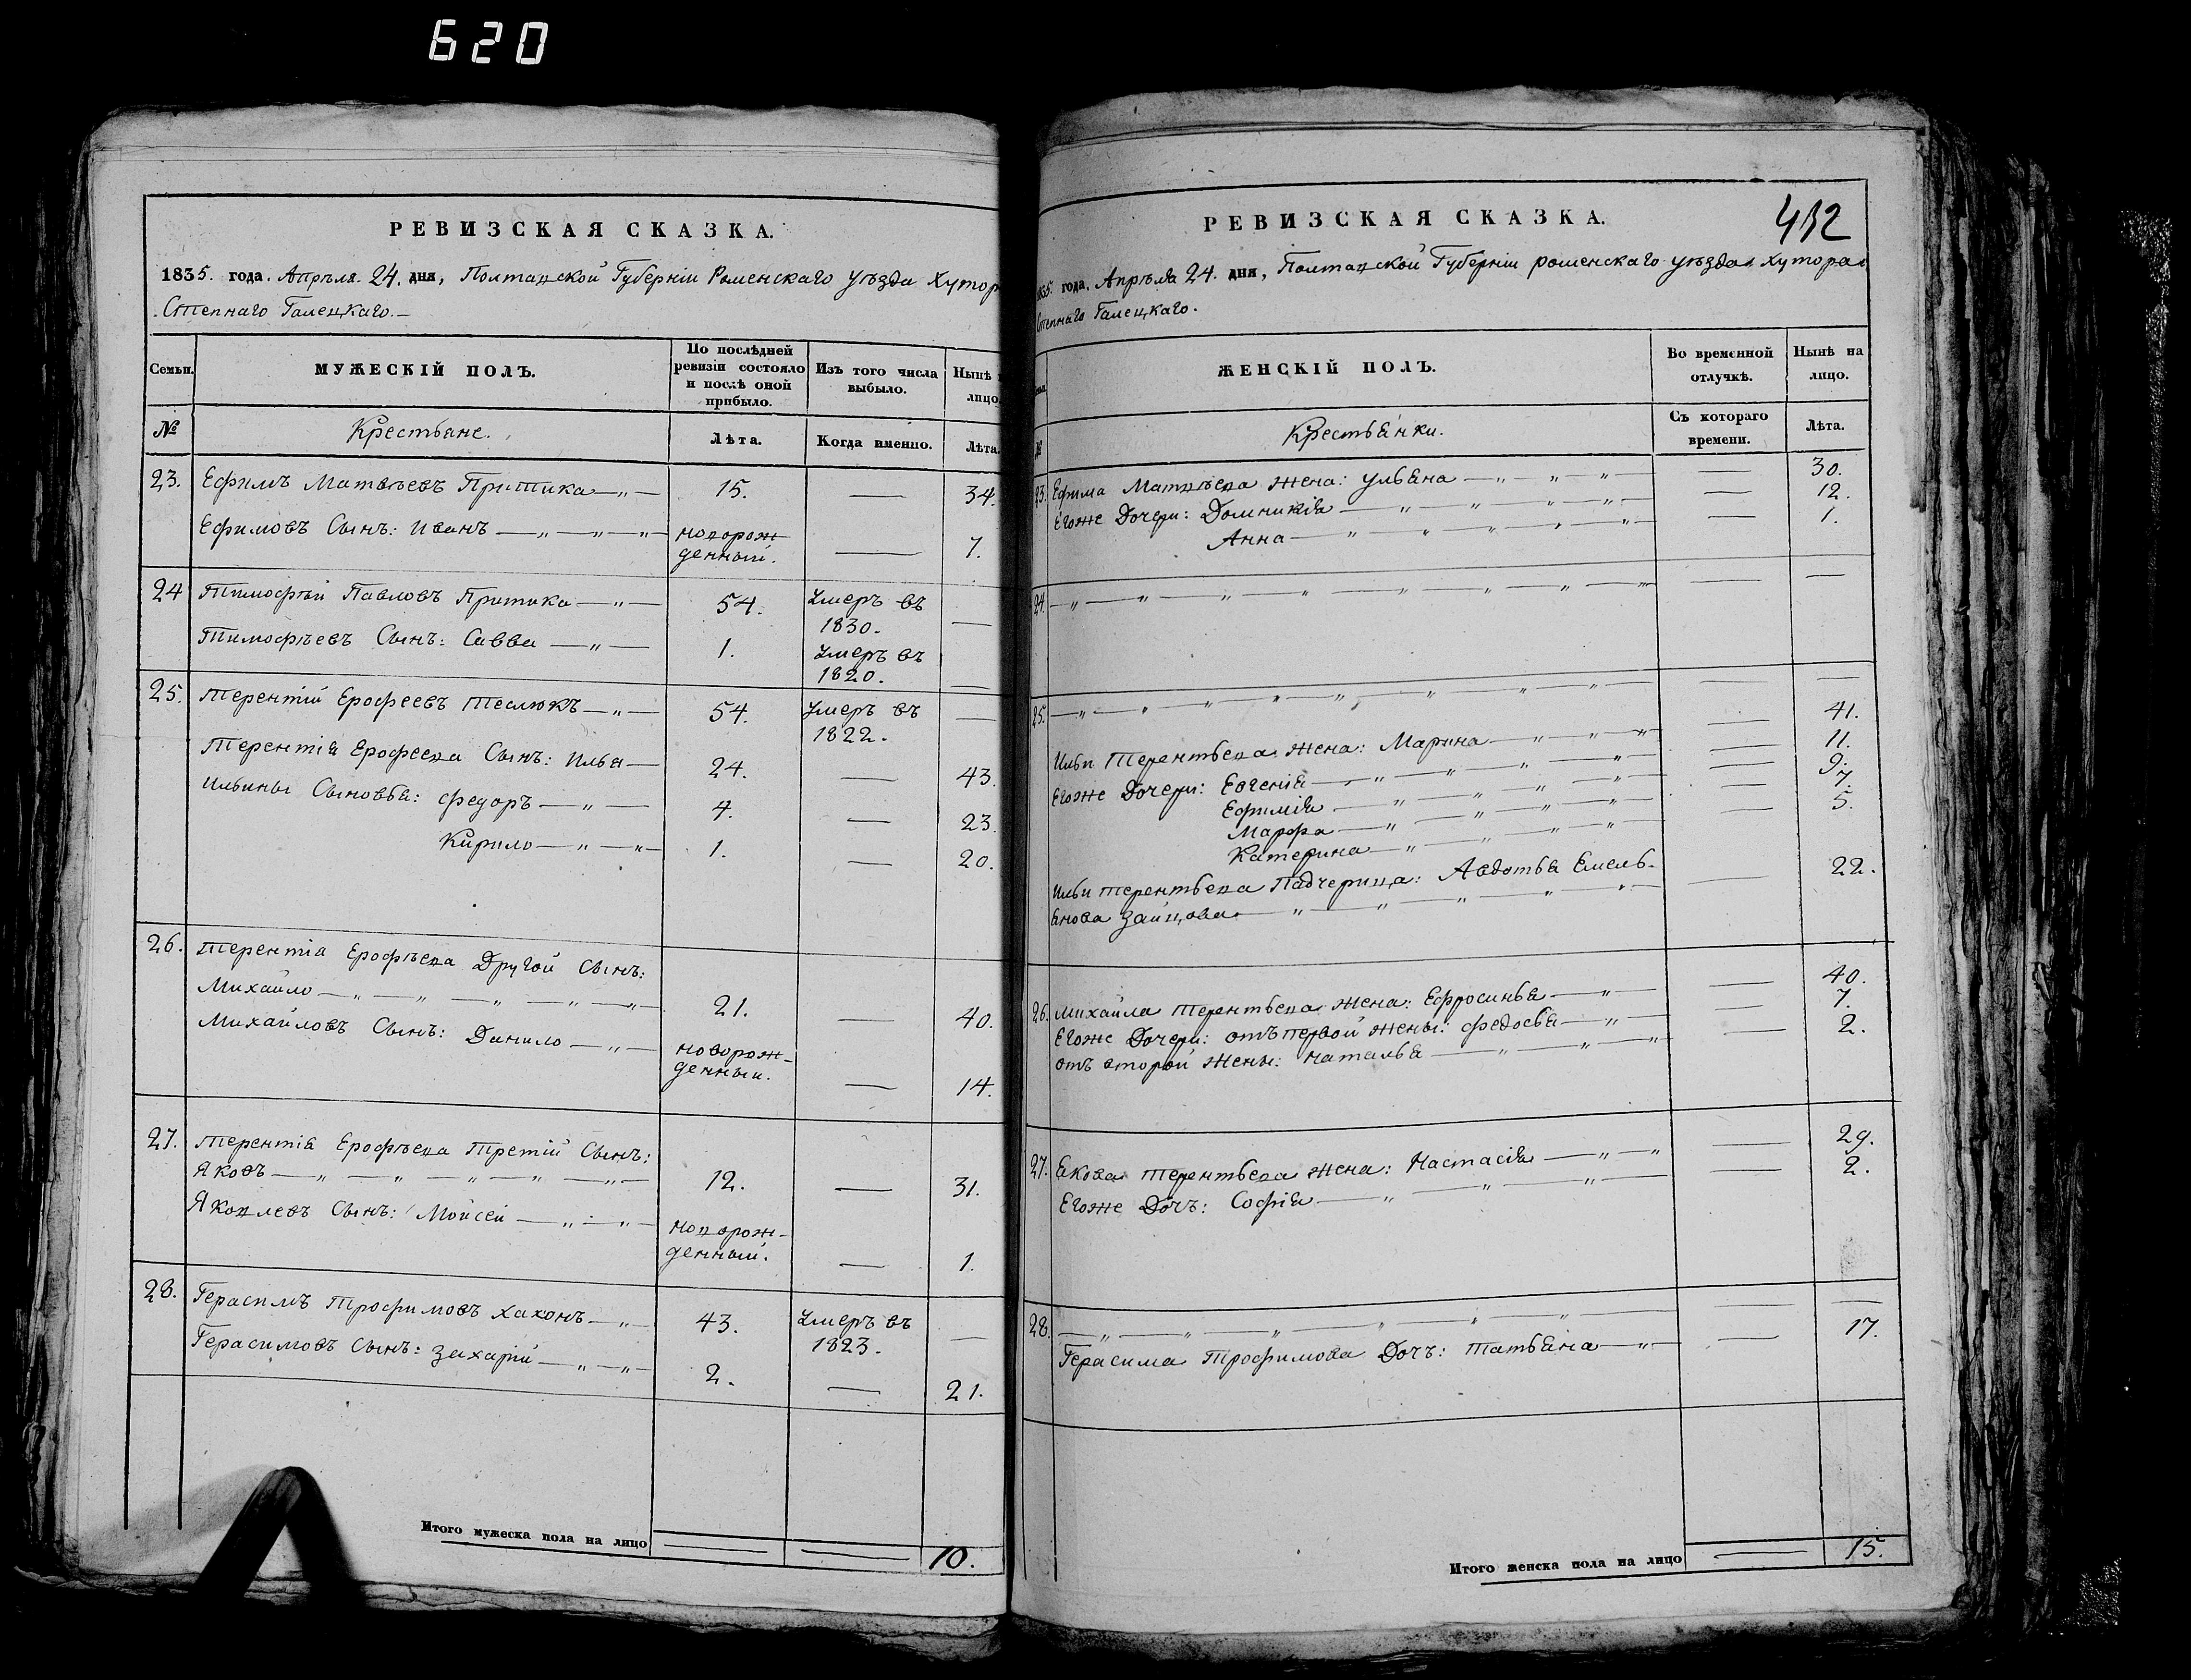 620
РЕВИЗСКАЯ СКАЗКА.
1835. года. Апрѣля. 24. дня, Полтавской Губерніи Роменскаго уѣзда Хутор
Степнаго Галецкаго.
Семьи.
МУЖЕСКІЙ ПОЛЪ.
По послѣдней ревизіи состояло и послѣ оной прибыло.
Изъ того числа выбыло.
Нынѣ лицо
№
Крестьяне.
Лѣта.
Когда именно.
Лѣта.
23. Ефимъ Матвѣевъ Притика 15. — 34.
Ефимовъ Сынъ: Иванъ новорож
денный. — 7.
24 Тимофѣй Павловъ Притика 54. Умеръ въ 1830. —
Тимофѣевъ Сынъ: Савва 1. Умеръ въ 1820. —
25. Терентій Ерофеевъ Теслюкъ 54. Умеръ въ 1822. —
Терентія Ерофеева Сынъ: Илья 24. — 43.
Ильины Сыновья: Федоръ 4. — 23.
Кирило 1. — 20.
26. Терентія Ерофѣева Другой Сынъ:
Михайло 21. — 40.
Михайловъ Сынъ: Данило новорож-
денный. — 14.
27. Терентія Ерофѣева Третій Сынъ:
Яковъ 12. — 31.
Яковлевъ Сынъ: Мойсей новорож-
денный. — 1.
28. Герасимъ Трофимовъ Хахонъ 43. Умеръ въ 1823. —
Герасимовъ Сынъ: Захарій 2. — 21.
Итого мужеска пола на лицо 10.
412
РЕВИЗСКАЯ СКАЗКА.
1835. года, Апрѣля 24. дня, Полтавской Губерніи роменскаго уѣзда хутора
Степнаго Галецкаго.
ЖЕНСКІЙ ПОЛЪ.
Во временной отлучкѣ.
Нынѣ на лицо.
№
Крестьянки.
Съ котораго времени.
Лѣта.
23. Ефима Матвѣева Жена: Ульяна — 30.
Егоже Дочери: Домникія — 12.
Анна — 1.
24. — —
25. — —
Ильи Терентьева Жена: Марина — 41.
Егоже Дочери: Евгенія — 11.
Ефимія — 9.
Марфа — 7.
Катерина — 5.
Ильи Терентьева Падчерица: Авдотья Емель-
янова Зайцова — 22.
26. Михайла Терентьева Жена: Ефросинья — 40.
Егоже Дочери: отъ первой жены: Федосья — 7.
отъ второй Жены: Наталья — 2.
27. Якова Терентьева Жена: Настасія — 29.
Егоже Дочъ: Софія — 2.
28. — —
Герасима Трофимова Дочъ: Татьяна — 17.
Итого женска пола на лицо 15.